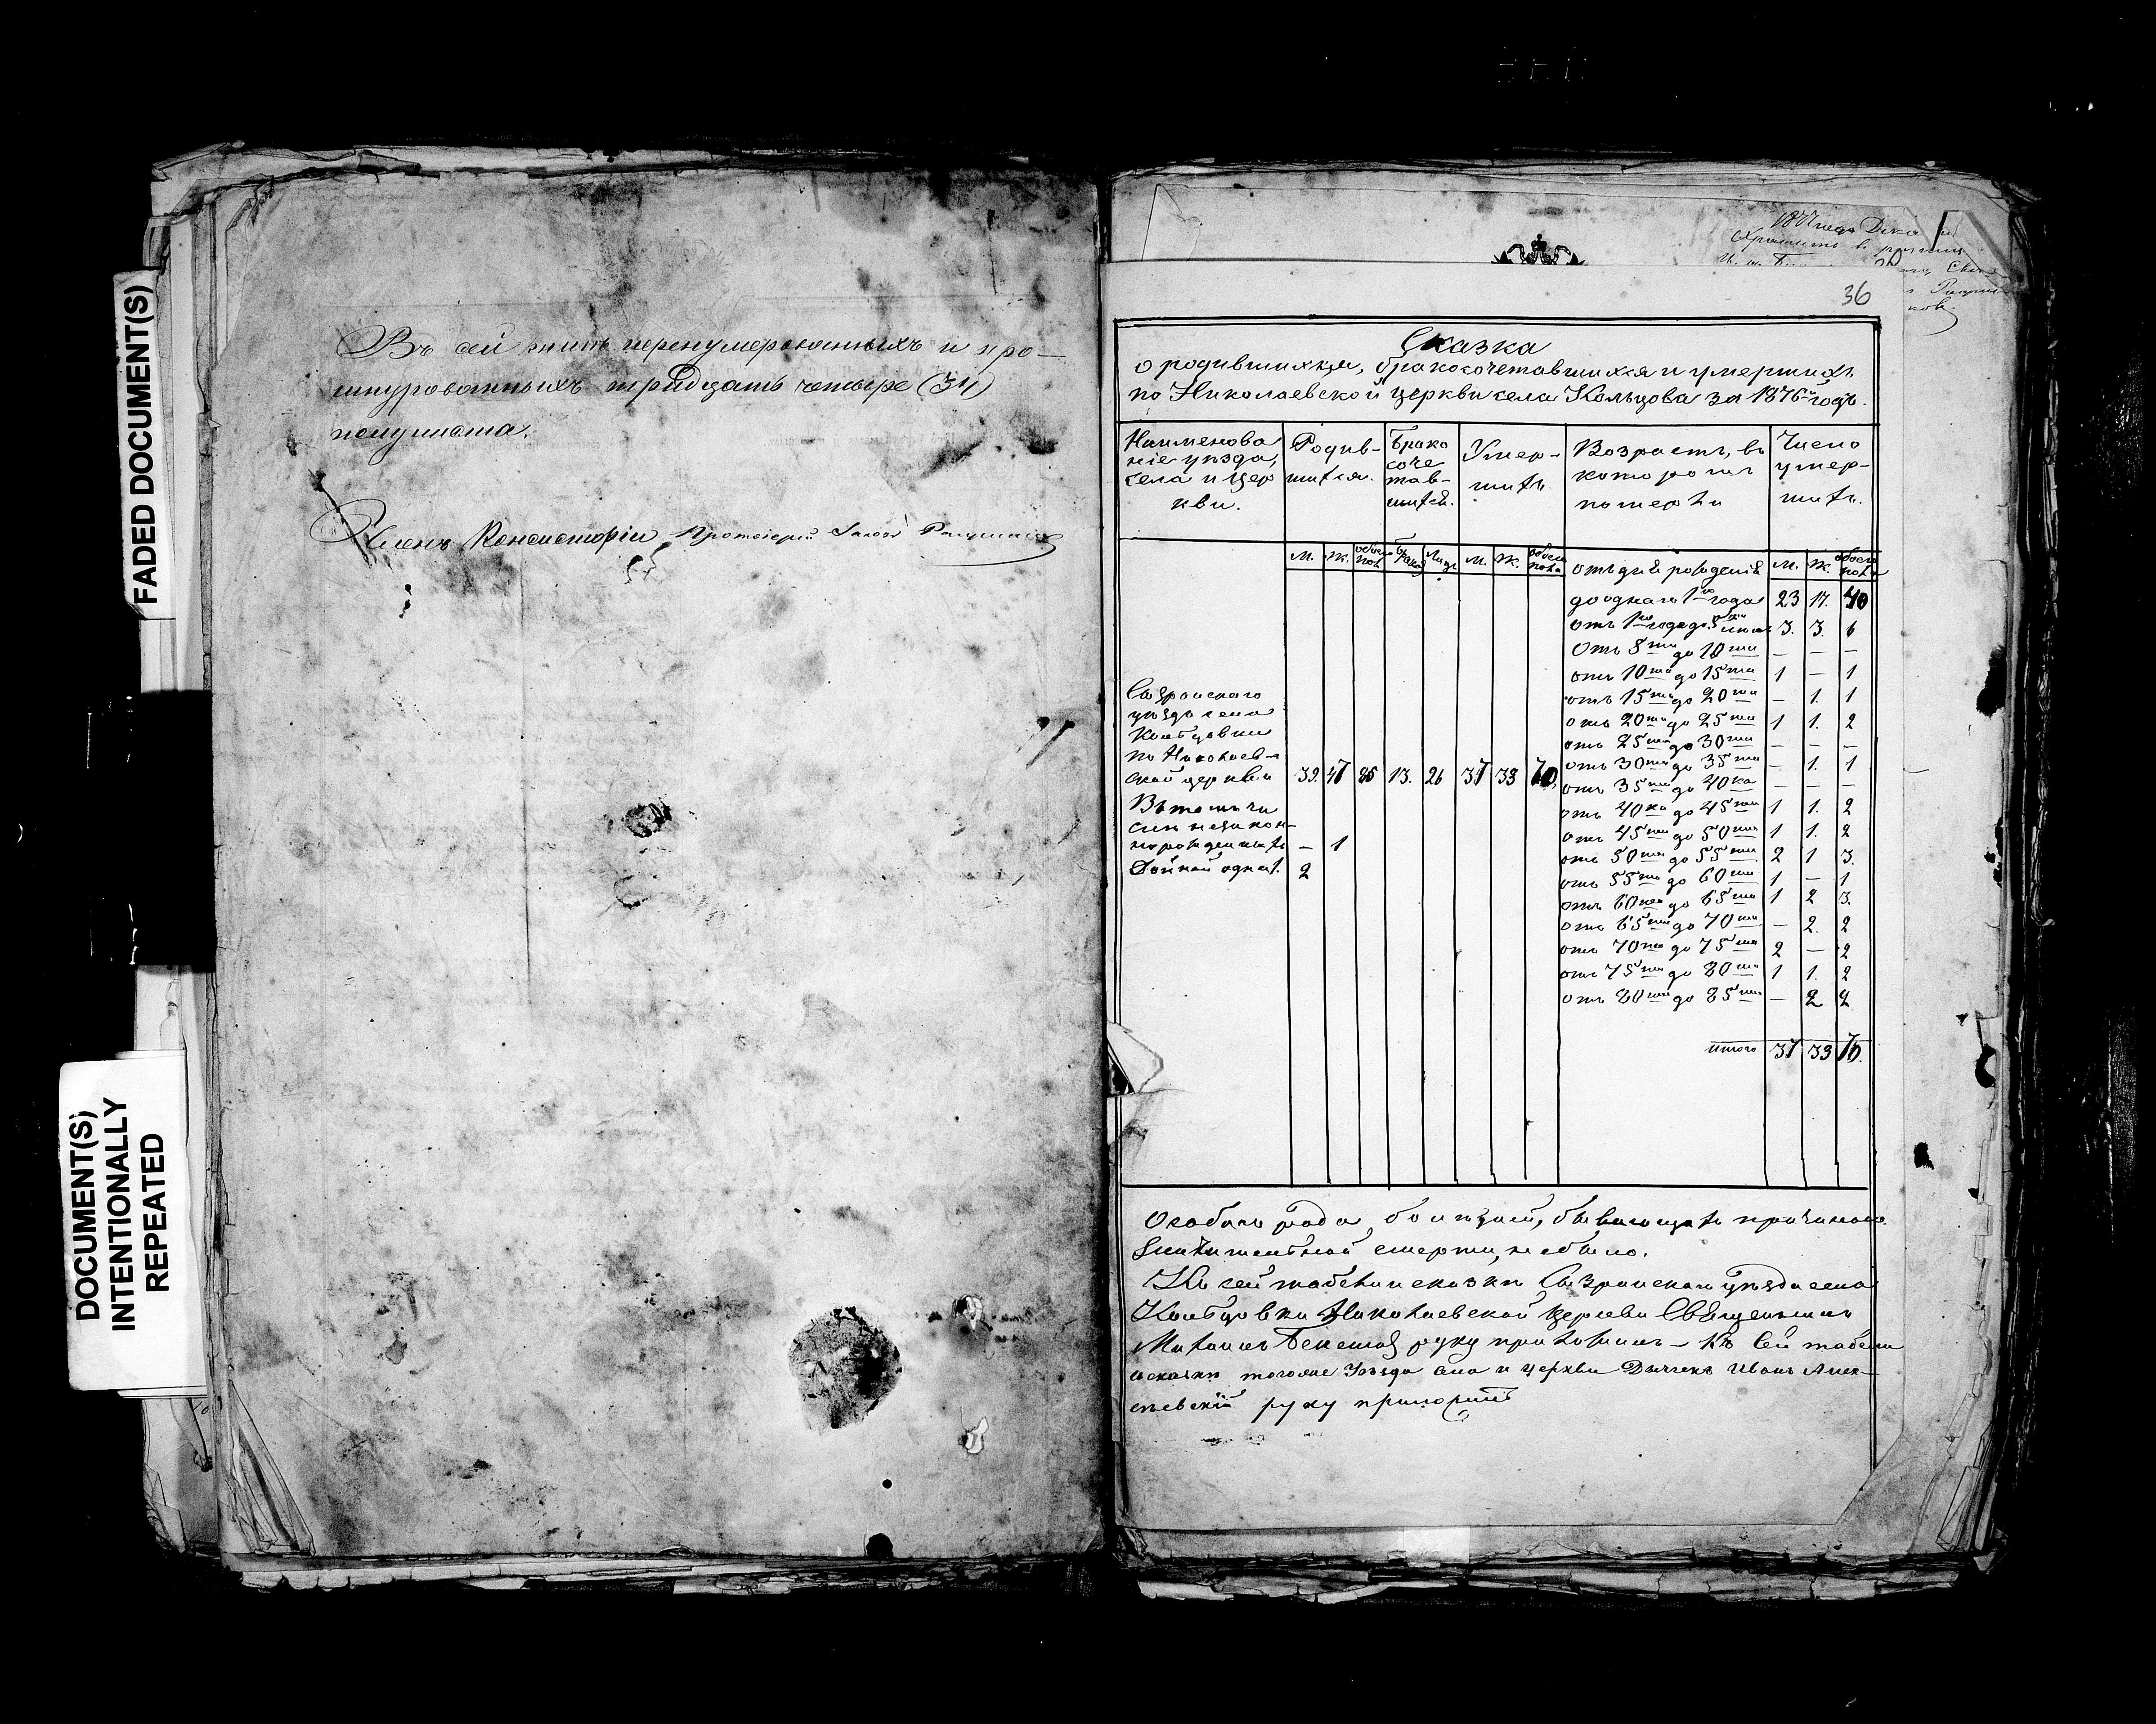 FADED DOCUMENT(S)
DOCUMENT(S)
INTENTIONALLY
REPEATED
Въ сей книгѣ перенумерованныхъ и про-
шнурованныхъ тридцать четыре (34)
полулиста.
Членъ Консисторіи Протоіерей
36
Сказка
о родившихся, бракосочетавшихся и умершихъ
по Николаевской церкви села Кольцова за 1876й годъ.
Наименова Родив- Брако Умер- Возрастъ, въ Число
ніе уѣзда, шихся. соче шихъ. которомъ умер-
села и цер тав- померли шихъ.
кви. шихся.
м. ж. обоего пол. Брако Лицъ м. ж. обоего пола отъ дня рожденія м. ж. обоего пола
до однаго 1го года 23 17. 40
отъ 1го года до 5ти лѣтъ 3. 3. 6
отъ 5ти до 10ти — — —
отъ 10ти до 15ти 1 — 1
отъ 15ти до 20ти — 1. 1
отъ 20ти до 25ти 1 1. 2
отъ 25ти до 30ти — — —
отъ 30ти до 35ти — 1. 1
отъ 35ти до 40ка — — —
отъ 40ка до 45ти 1 1. 2
отъ 45ти до 50ти 1 1. 2
отъ 50ти до 55ти 2 1 3.
отъ 55ти до 60ти 1 — 1
отъ 60ти до 65ти 1 2 3.
отъ 65ти до 70ти — 2. 2
отъ 70ти до 75ти 2 — 2
отъ 75ти до 80ти 1 1. 2
отъ 80ти до 85ти — 2 2
итого 37 33 70.
Сызранскаго
уѣзда села
Кольцовки
по Николаев-
ской церкви 39. 47 86 13. 26 37 33 70,
Въ томъ чи
слѣ незакон-
норожденныхъ — 1
Двойной одна 1. 2
Особаго рода болѣзней, бывающихъ причиною
значительной смерти, не было.
Къ сей табели и сказкѣ Сызранскаго уѣзда села
Кольцовки Николаевской церкви Священникъ
Михаилъ руку приложилъ – Къ сей табели
и сказкѣ тогоже уѣзда села и церкви Дьячекъ Иванъ Алек-
сѣевскій руку приложилъ